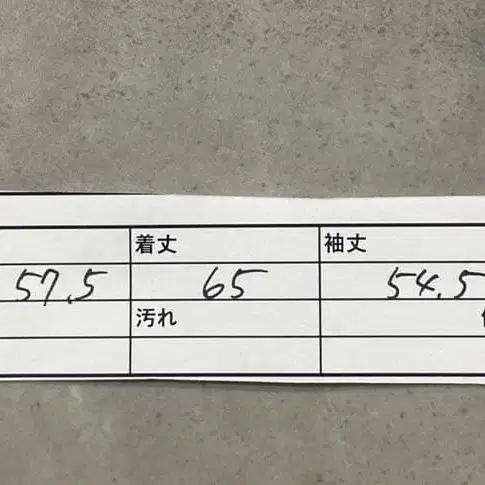 着丈 袖丈
57.5 65 54.5
汚れ